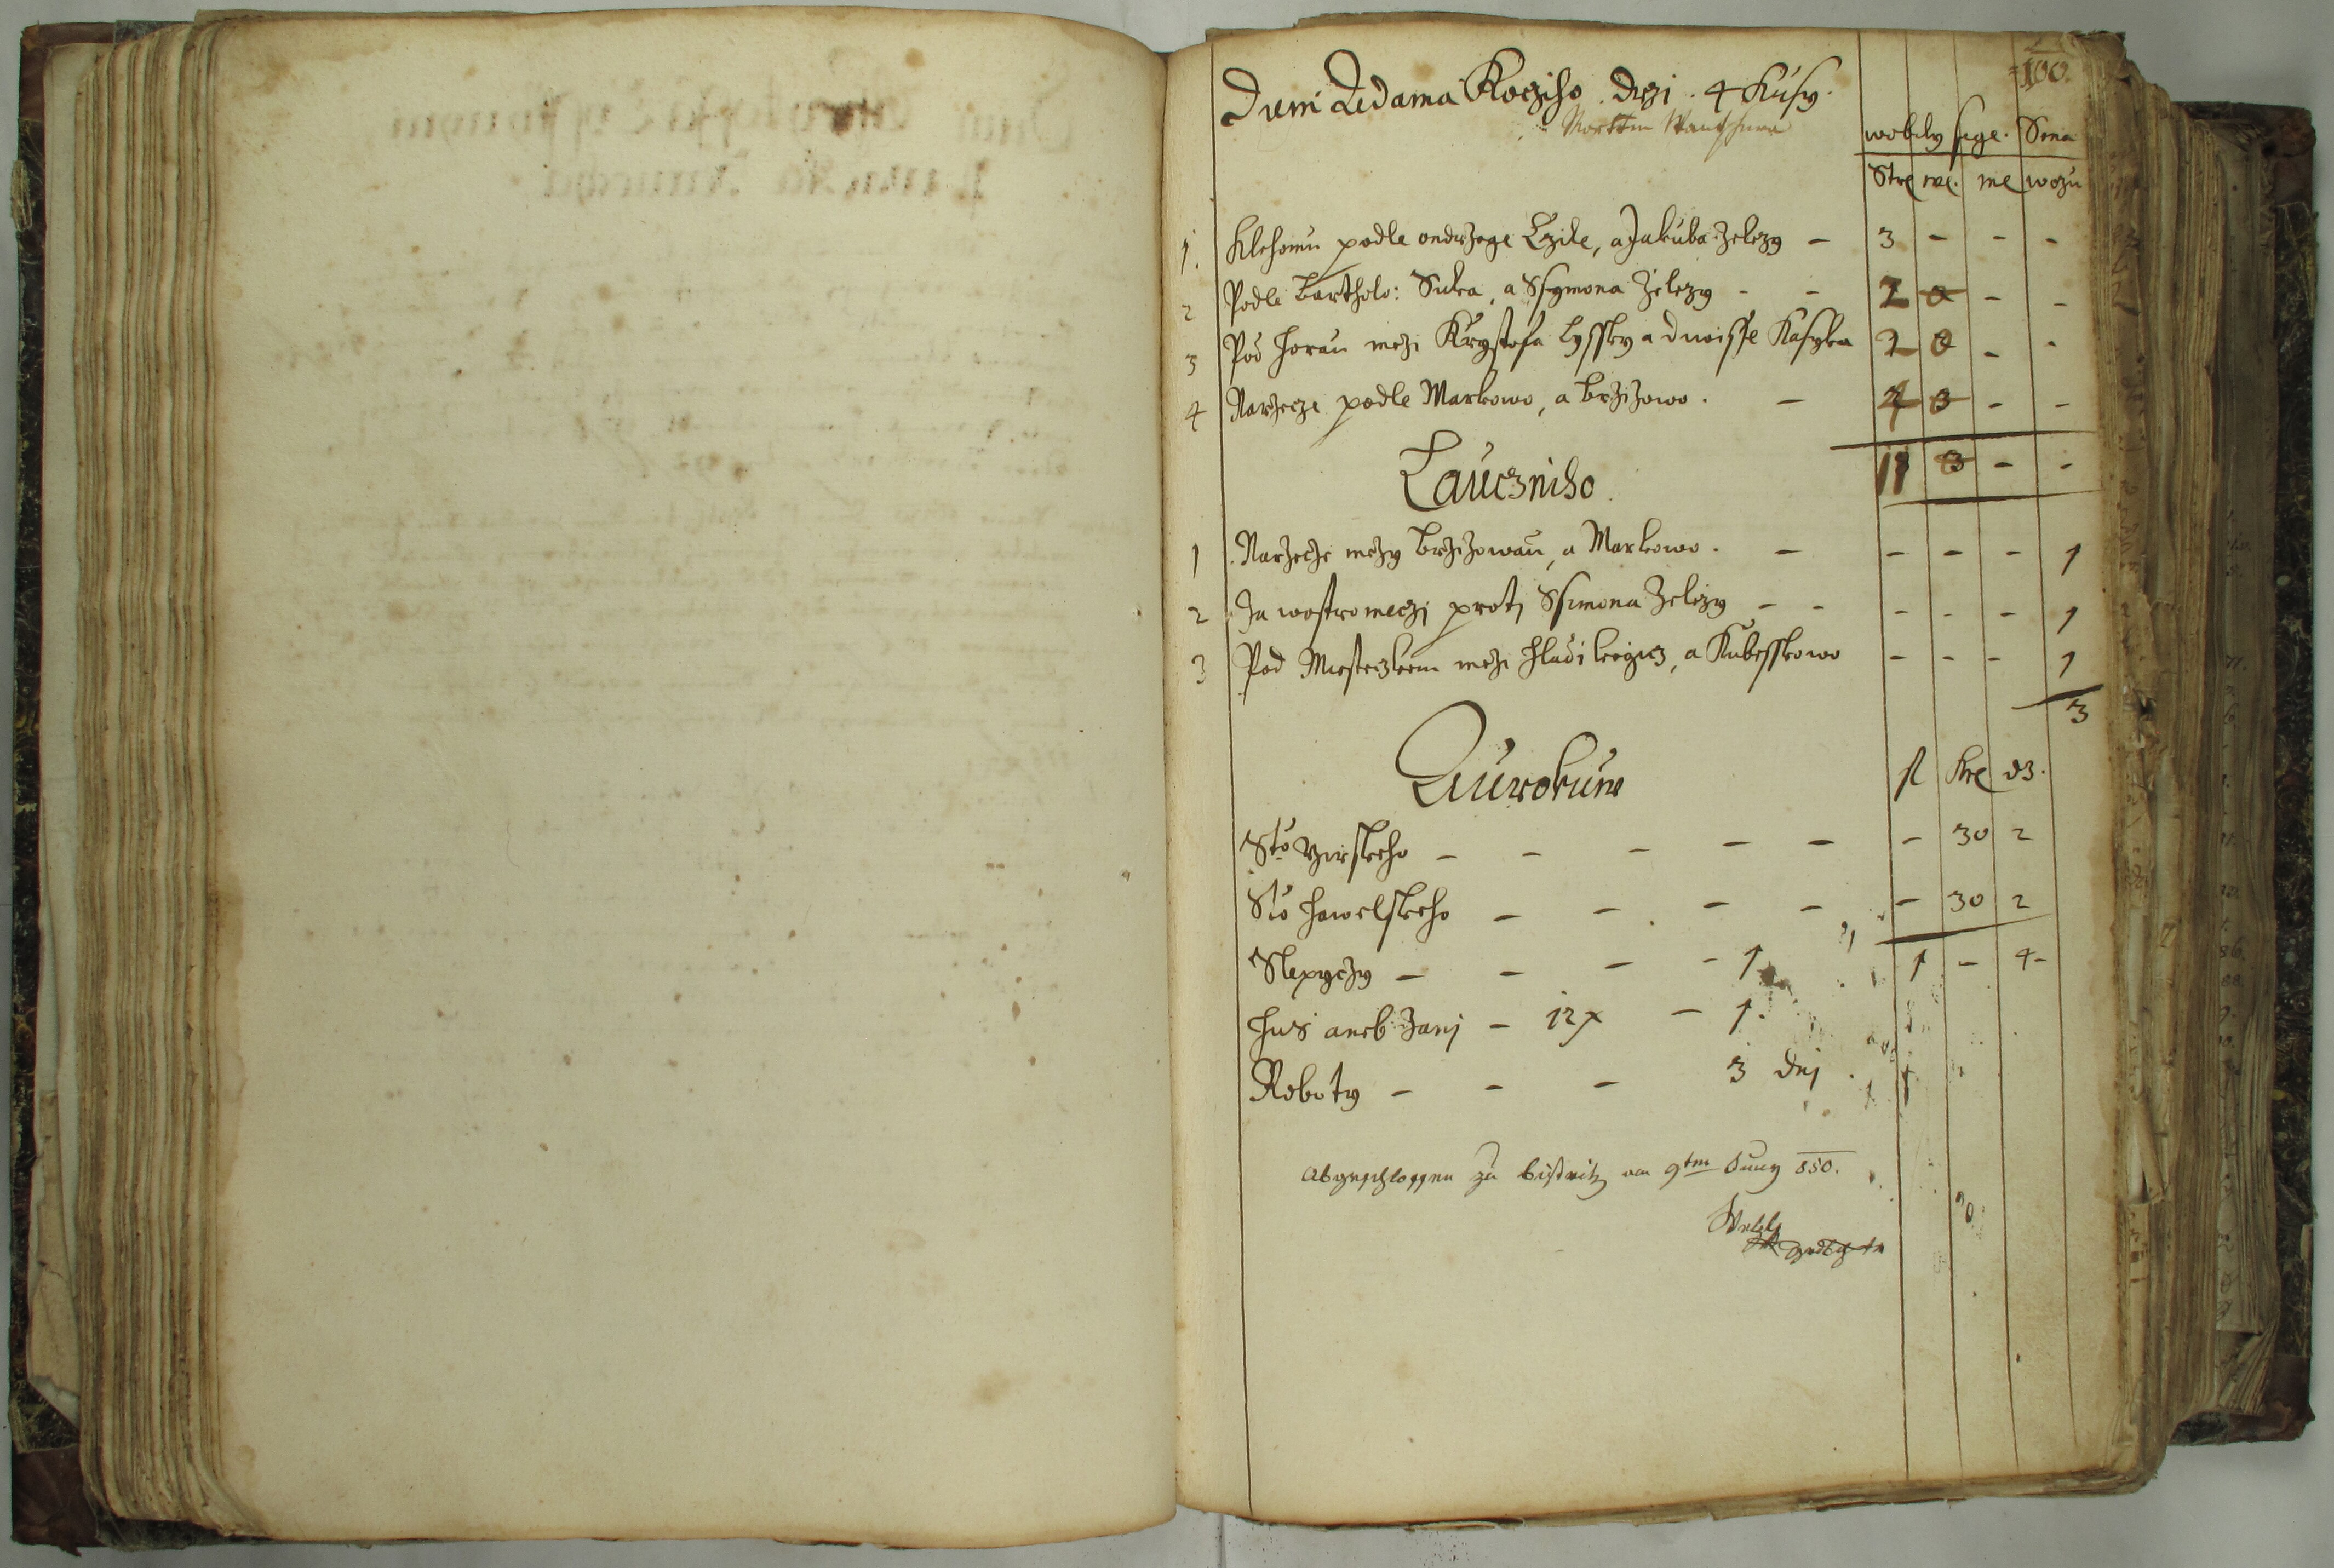 100.
Dum Adama Koczího. drzi. 4 Kusy.
Morttin
wobily sege. Sena
Strych me. me wozu
1. Klehomu podle ondrzege Czile, a Jakuba Zelezy – 3 – – –
2 Podle Bartholo: Suka, a Ssymona Zelezy – – 2 – –
3 Pod horau mezi Krystofa Lyssky a dwoisse Kasyka 2 – –
4 Narzecze podle Markowo, a brzizowo. – 4 3 – –
11 3 – –
Lauczního.
1 Narzecze mezy brzizowau, a Markowo. – – – – 1
2 Za wostromeczj protj Ssimona Zelezy – – – – – 1
3 Pod Mesteczkem mezi hladikogicz, a Kubesskowo – – – 1
3
Aurokuw
fl kre d3.
Sto girskeho – – – – – – 30 2
Sto hawelskeho – – – – – 30 2
Slepyczy – – – – 1 1 – 4 –
hus aneb Zanj – 12 x – 1.
Roboty – – – 3 dnj
Abgeschlossen zu Bistritz am 9tm Juny 850.